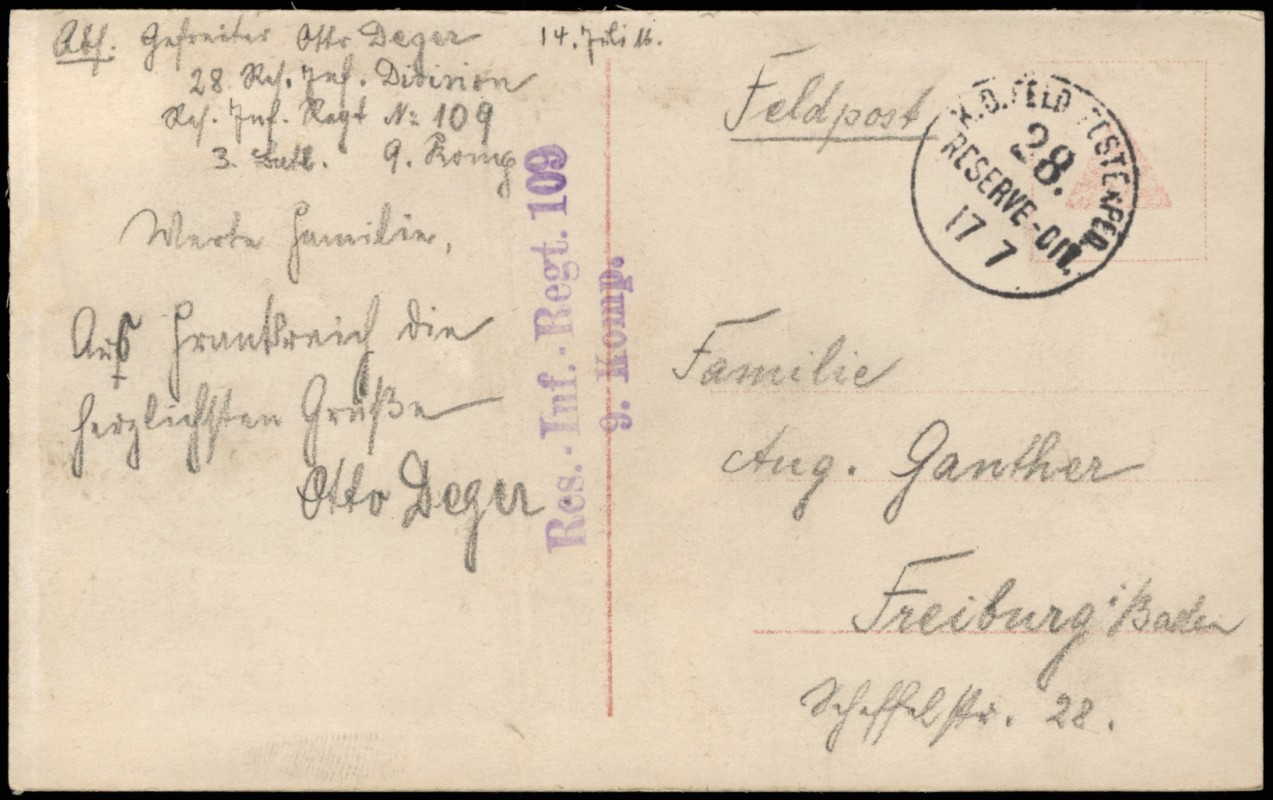 Abs. Gefreiter Otto Deger 14. Juli 16.
28. Res. Inf. Division
Res. Inf. Regt No 109
3. Batl. 9. Komp
Werte Familie,
Aus Frankreich die
herzlichsten Grüße
Otto Deger
Res.-Inf.-Regt. 109
9. Komp.
Feldpost
K.D.FELDPOSTEXPED.
28.
RESERVE-DIV.
17 7
Familie
Aug. Ganther
Freiburg i/Baden
Scheffelstr. 28.